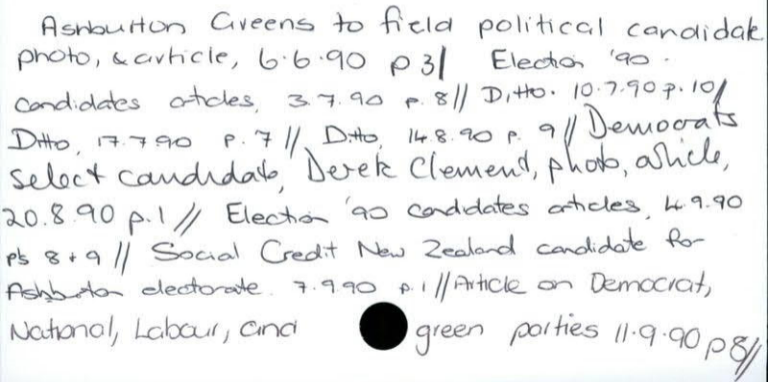 Ashburton Greens to field political candidate
photo, & article, 6.6.90 p 3/ Election '90.
candidates articles, 3.7.90 p. 8// Ditto. 10.7.90 p. 10/
Ditto, 17.7.90 p. 7 // Ditto, 14.8.90 p. 9 // Democrats
select candidate, Derek Clement, photo, article,
20.8.90 p.1 // Election '90 candidates articles, 4.9.90
p's 8 + 9 // Social Credit New Zealand candidate for
Ashburton electorate. 7.9.90 p.1 // Article on Democrat,
National, Labour, and green parties 11.9.90 p8//